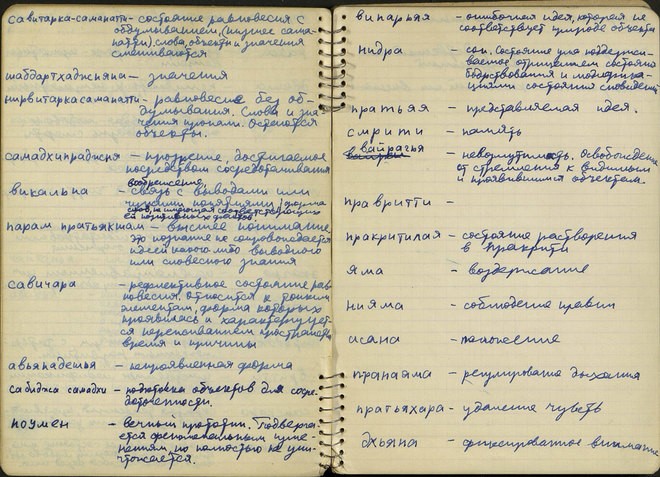 савитарка-самапатти - состояние равновесия с
обдумыванием, (низшее сама-
патти) слова, объекты и значения
смешиваются
шабдартхаджняна - значения
нирвитарка самапатти - равновесие без об-
думывания. Слова и зна-
чения пропали. Остаются
объекты.
самадхипраджня - прозрение, достигаемое
посредством сосредотачивания
воображение
викальпа - связь с выводами или
чужими понятиями (форма
слов, не имеющая соответствующих
ей позитивных фактов)
парам пратьякшам - высшее понимание
это познание не сопровождается
идеей какого либо выводного
или словесного знания
савичара - рефлективное состояние рав-
новесия. Относится к тонким
элементам, форма которых
проявилась и характеризует-
ся переживанием пространства
время и причины
авьяпадешья - непроявленная форма
сабиджа самадхи - подготовка объектов для сосре-
доточенности.
ноумен - вечный прототип. Подверга-
ется феноменальным изме-
нениям, но полностью не уни-
чтожается.
випарьяя - ошибочная идея, которая не
соответствует природе объекта
нидра - сон. Состояние ума поддержи-
ваемое отрицанием состояния
бодрствования и модифика-
циями состояния сновидений
пратьяя - представляемая идея.
смрити - память
вайрагья - невозмутимость. Освобождение
от стремления к видимым
и проявившимся объектам.
правритти -
пракритилая - состояние растворения
в пракрити
яма - воздержание
нияма - соблюдение правил
асана - положение
пранаяма - регулирование дыхания
пратьяхара - удаление чувств
дхьяна - фиксированное внимание